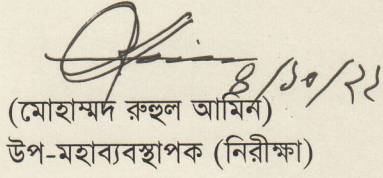 ৪/১০/২২
(মোহাম্মদ রুহুল আমিন)
উপ-মহাব্যবস্থাপক (নিরীক্ষা)